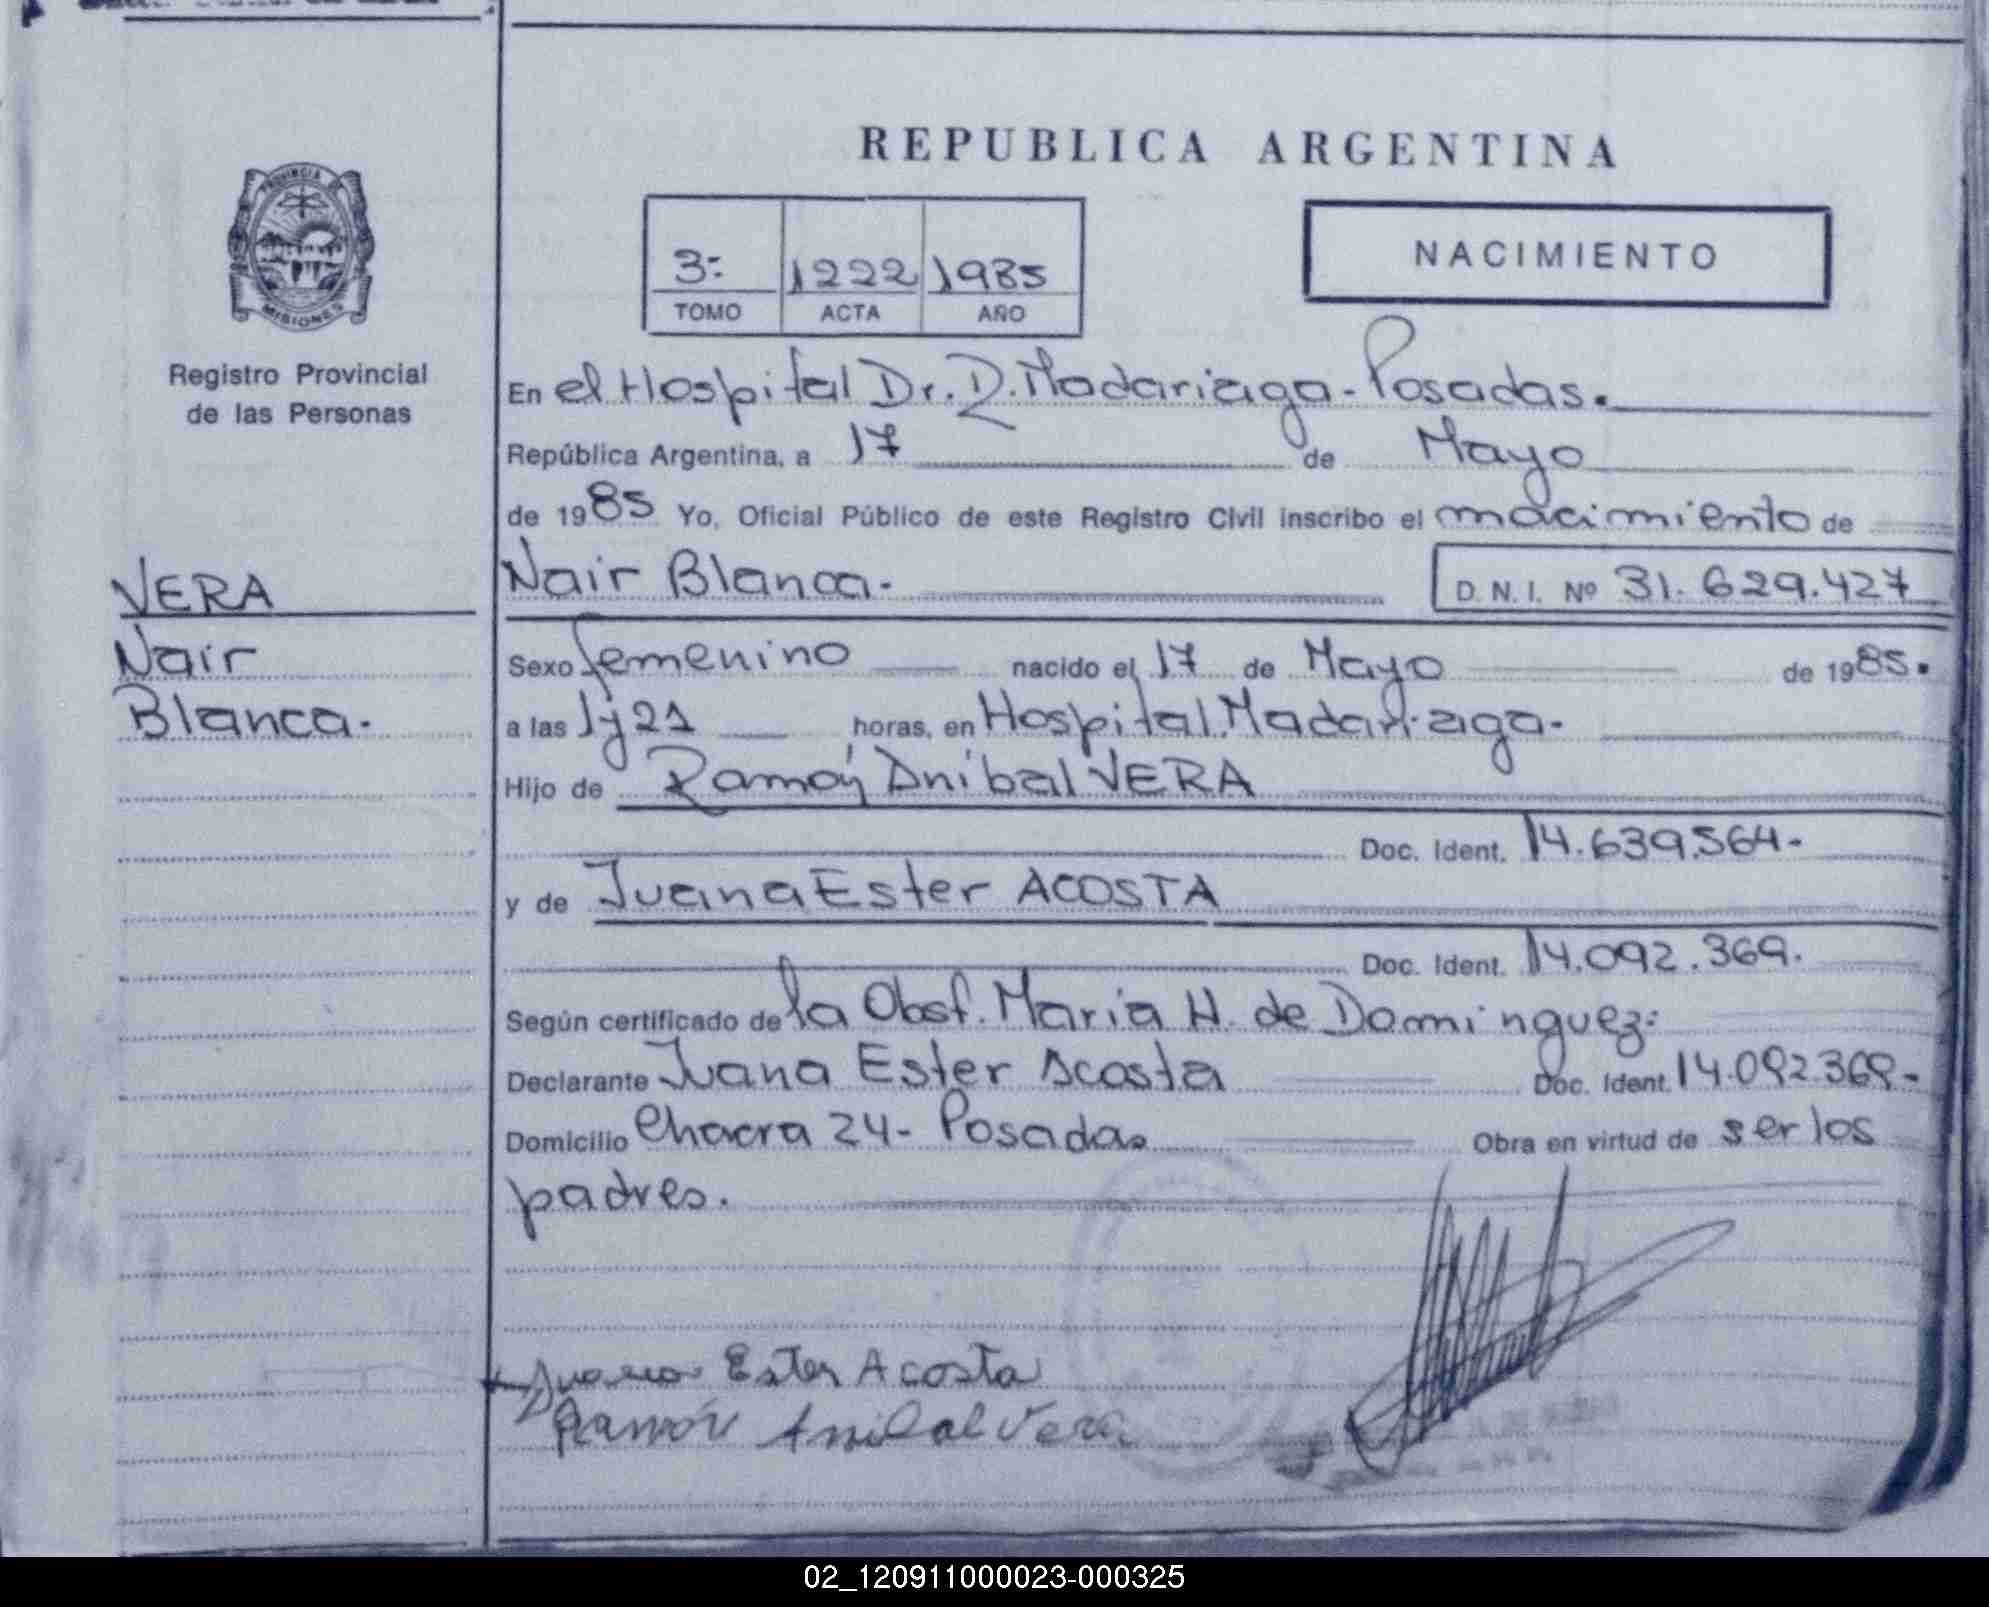 REPUBLICA ARGENTINA
PROVINCIA DE
MISIONES
Registro Provincial
de las Personas
VERA
Nair
Blanca.
3º
1222
1985
TOMO
ACTA
AÑO
NACIMIENTO
En el Hospital Dr. R. Madariaga - Posadas.
República Argentina, a 17 de Mayo
de 1985 Yo, Oficial Público de este Registro Civil inscribo el nacimiento de
Nair Blanca. D. N. I. Nº 31.629.427
Sexo femenino nacido el 17 de Mayo de 1985.
a las 1 y 21 horas, en Hospital Madariaga.
Hijo de Ramón Anibal VERA
Doc. Ident. 14.639.564-
y de Juana Ester ACOSTA
Doc. Ident. 14.092.369.
Según certificado de la Obst. María H. de Dominguez:
Declarante Juana Ester Acosta Doc. Ident. 14.092.369-
Domicilio Chacra 24 - Posadas Obra en virtud de ser los
padres.
Juana Ester Acosta
Ramón Anibal Vera
02_120911000023-000325